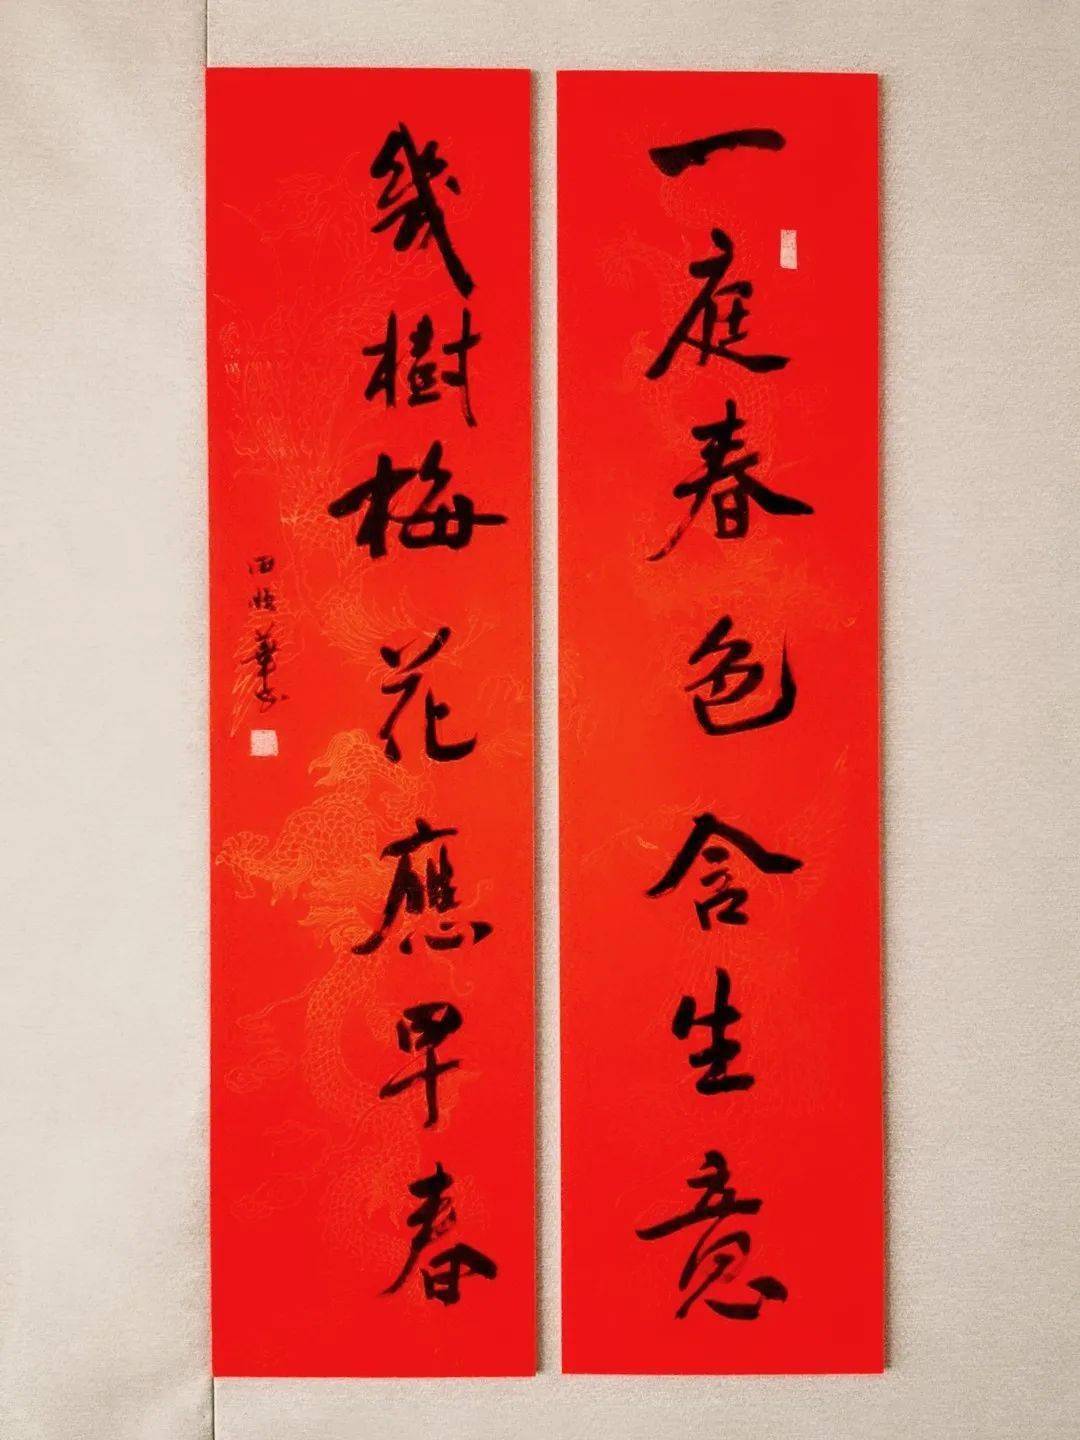 一庭春色含生意
幾樹梅花應早春